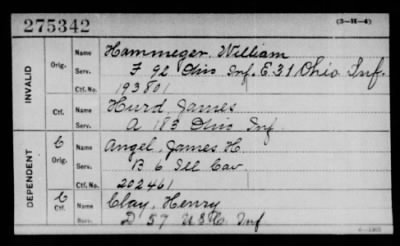 275342 (3-H-4)
INVALID Orig. Name Hammeger, William
Serv. F 92 Ohio Inf. E 31 Ohio Inf.
Ctf. No. 193801
Ctf. Name Hurd, James
Serv. A 183 Ohio Inf
DEPENDENT C Orig. Name Angel, James H.
Serv. B 6 Ill Cav
Ctf. No. 202461
C Ctf. Name Clay, Henry
Serv. D 57 U.S.C. Inf